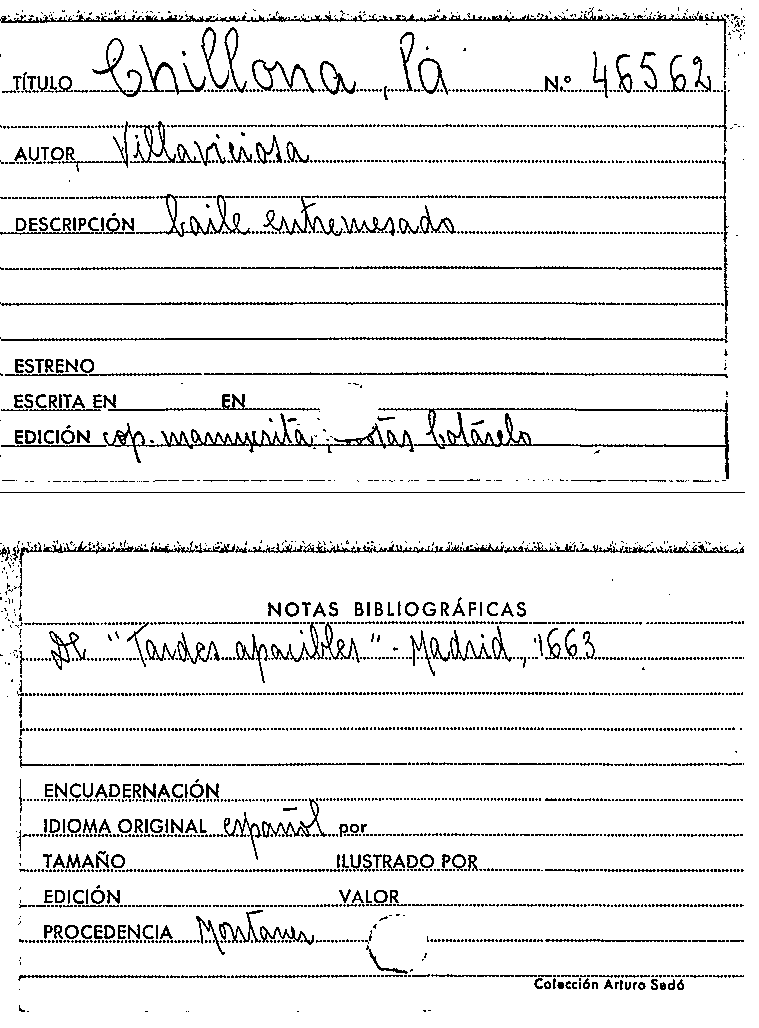 TÍTULO Chillona, la N.º 46562
AUTOR Villaviciosa
DESCRIPCIÓN baile entremesado
ESTRENO
ESCRITA EN EN
EDICIÓN cop. manuscrita; notas Cotarelo
NOTAS BIBLIOGRÁFICAS
De "Tardes apacibles" - Madrid, 1663
ENCUADERNACIÓN
IDIOMA ORIGINAL español por
TAMAÑO ILUSTRADO POR
EDICIÓN VALOR
PROCEDENCIA Montaner
Colección Arturo Sedó